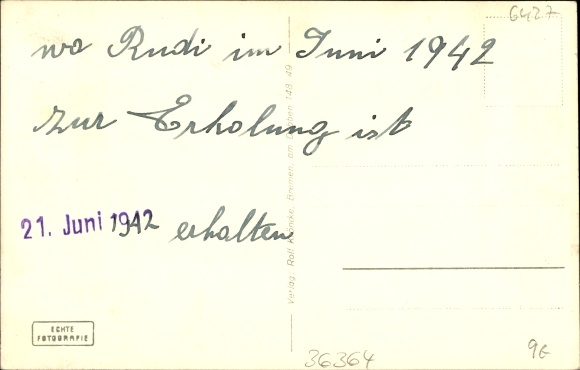 6427
wo Rudi im Juni 1942
zur Erholung ist
21. Juni 1942 erhalten
Verlag: Rolf Bremen, am 148 49
ECHTE
FOTOGRAFIE
36364
9E